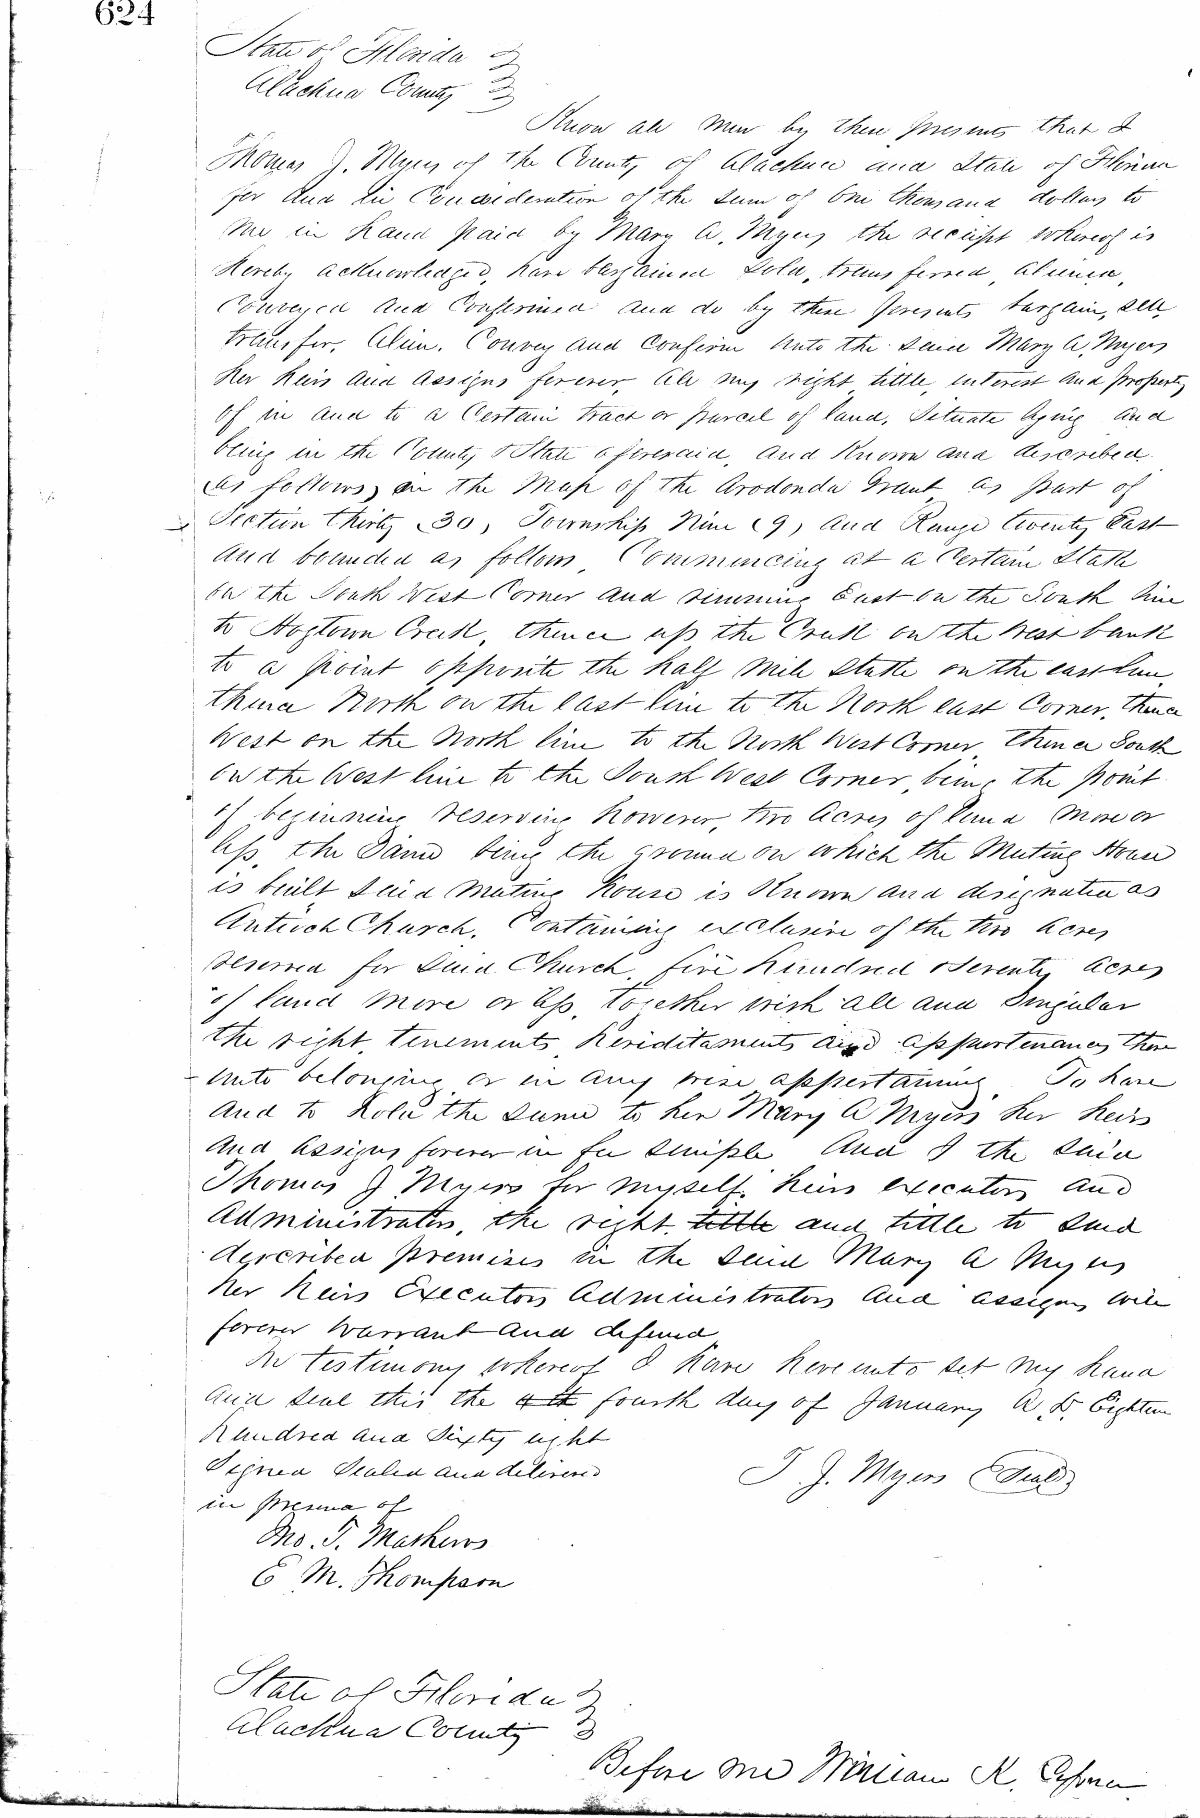 624
State of Florida
Alachua County
Know all Men by these presents that I
Thomas J. Myers of the County of Alachua and State of Florida
for and in Consideration of the sum of One thousand dollars to
me in hand paid by Mary A. Myers the receipt whereof is
hereby acknowledged, have bargained sold, transferred, aliened,
Conveyed and Confirmed and do by these presents bargain, sell,
transfer, Alien, Convey and Confirm unto the said Mary A. Myers
her heirs and assigns forever, all my right, tittle, interest and property
of in and to a Certain tract or parcel of land, Situate lying and
being in the County & State aforesaid, and Known and described
as follows, in the Map of the Arodonda Grant as part of
Section thirty (30), Township Nine (9) and Range twenty East
and bounded as follows, Commencing at a Certain Stake
on the South West Corner and running East on the South line
to Hogtown Creek, thence up the Creek on the West bank
to a point opposite the half mile Stake on the east line,
thence North on the east line to the North east Corner, thence
West on the North line to the North West Corner, thence South
on the West line to the South West Corner, being the point
of beginning reserving however, two Acres of land more or
less, the Same being the ground on which the Meeting House
is built Said meeting house is Known and designated as
Antioch Church. Containing exclusive of the two acres
reserved for said Church, five hundred & seventy acres
of land more or less, together with all and Singular
the right, tenements, heriditaments and appertenances there
unto belonging or in any wise appertaining To have
and to hold the same to her Mary A Myers her heirs
and assigns forever in fee simple And I the said
Thomas J Myers for myself, heirs executors and
Administrators, the right, tittle and tittle to said
described premises in the said Mary A Myers
her heirs Executors Administrators and assigns will
forever Warrant and defend,
In testimony whereof I have hereunto set my hand
and seal this the 4th fourth day of January A. D. Eighteen
Hundred and Sixty eight
Signed Sealed and delivered
T. J. Myers (Seal)
in presence of
Jno. T. Mathews
E M. Thompson
State of Florida
Alachua County
Before me William K. Cessna